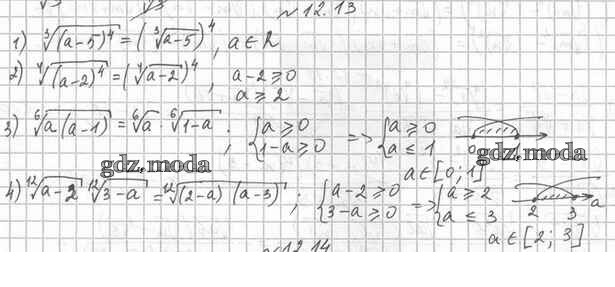 №12.13
1) ∛((a-5)⁴) = (∛(a-5))⁴, a ∈ R
2) ⁴√((a-2)⁴) = (⁴√(a-2))⁴, a-2 ≥ 0
a ≥ 2
3) ⁶√(a(a-1)) = ⁶√a · ⁶√(1-a); {a ≥ 0 1-a ≥ 0 => {a ≥ 0 a ≤ 1
a ∈ [0; 1]
gdz.moda gdz.moda
4) ¹²√(a-2) ¹²√(3-a) = ¹²√((2-a)(a-3)); {a-2 ≥ 0 3-a ≥ 0 => {a ≥ 2 a ≤ 3 2 3 a
a ∈ [2; 3]
№12.14